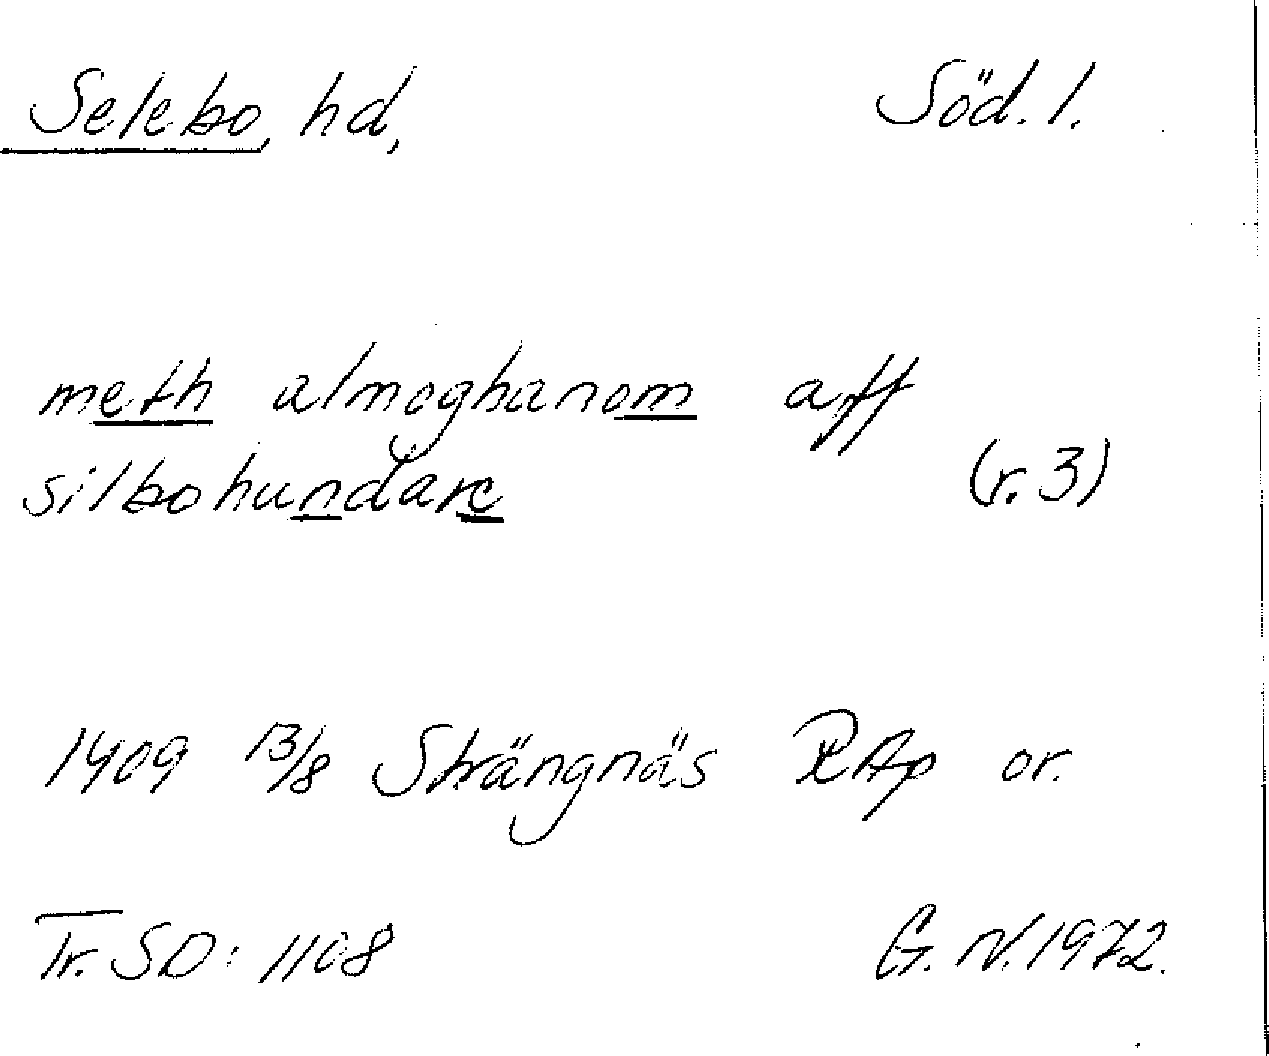 Selebo, hd, Söd. l.
meth almoghanom aff
silbohundare (r. 3)
1409 13/8 Strängnäs RAp or.
Tr. SD: 1108 G. N. 1972.